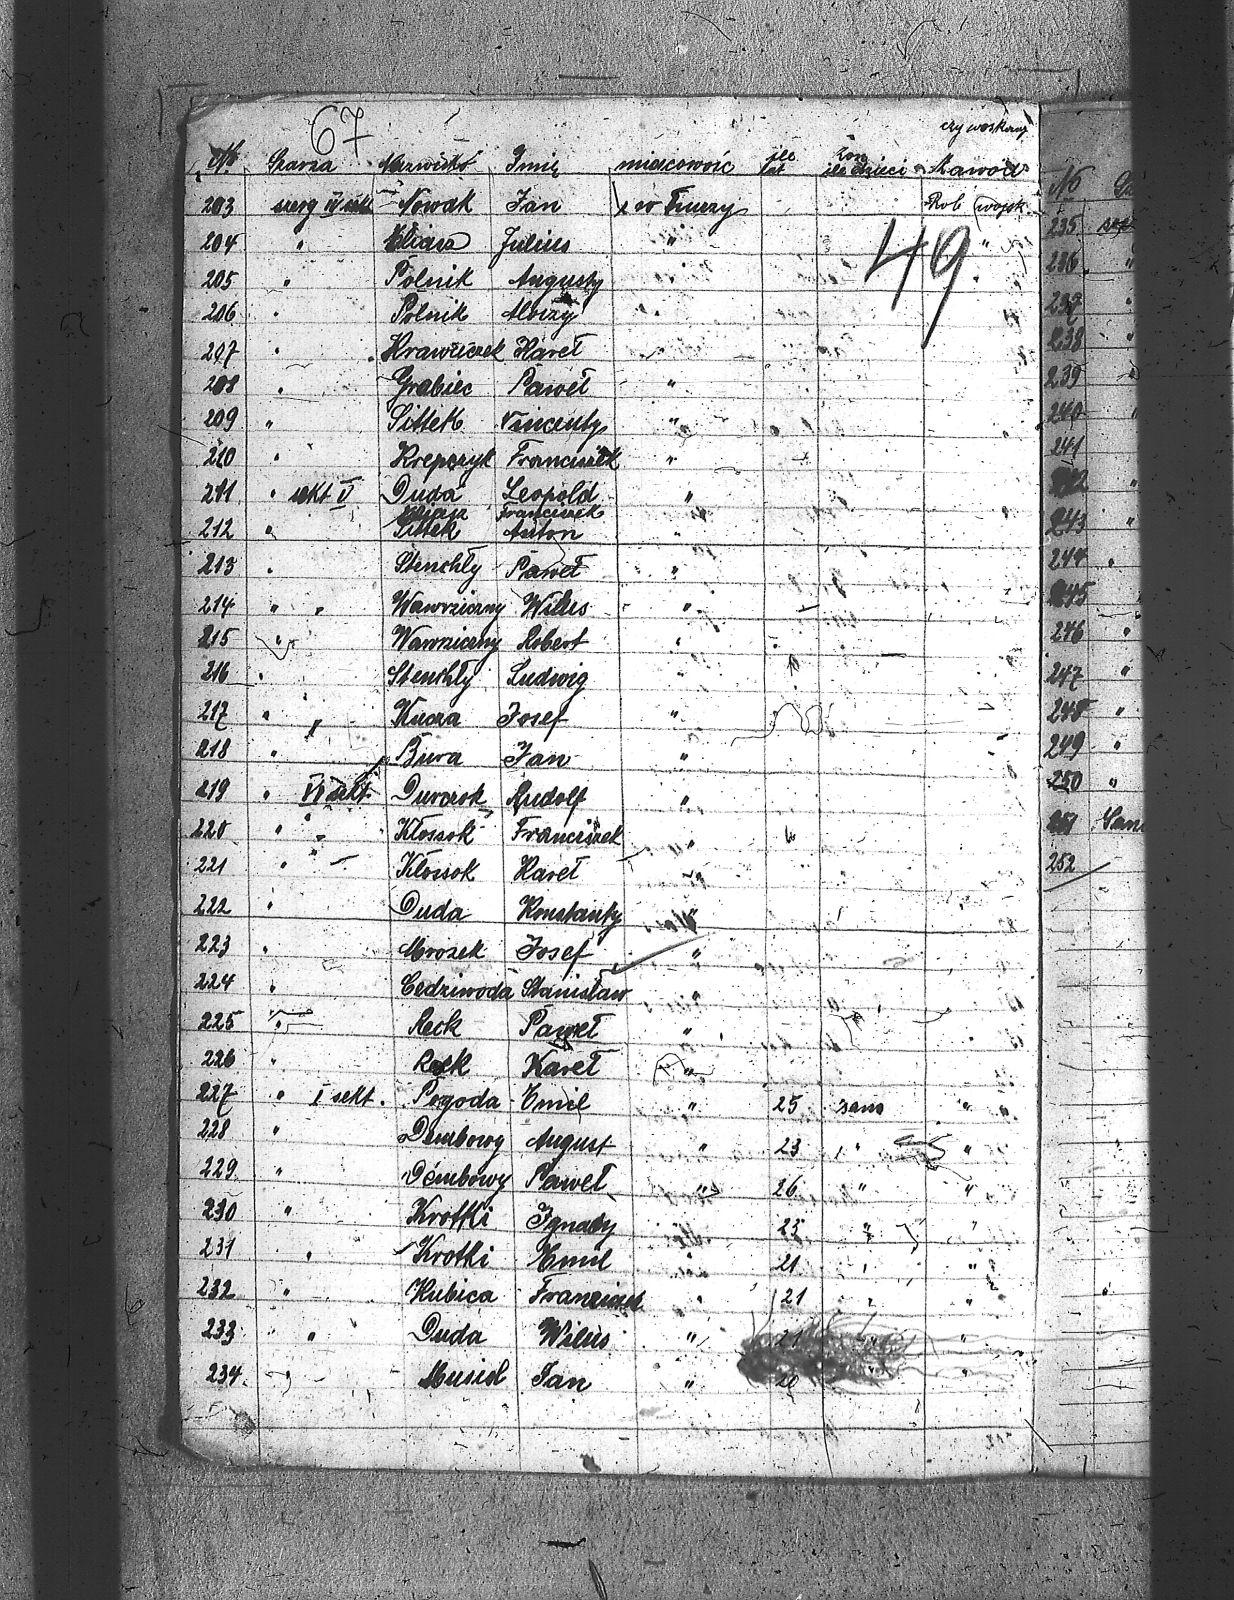 67
czy wojskowy
No. Szarza Nazwisko Imię miejscowość ile lat żon. ile dzieci Zawód
203 szerg IV sekt Nowak Jan w Turzy Rob (wojsk
49
204 " Eliasz Julius "
205 " Polnik Augusty
206 " Polnik Aloizy "
207 " Krawczczek Kareł
208 " Grabiec Paweł "
209 " Sittek Vincenty "
210 " Krepczyk Franciszek "
211 " sekt V Duda Leopold "
Eliasz Franciszek "
212 " Sittek Anton "
213 " Stenchły Paweł "
214 " " Wawrziczny Wilus "
215 " Wawrziczny Robert "
216 " Stenchły Ludwig "
217 " " Kucza Josef "
218 " Bura Jan "
219 " VI sekt. Durczok Rudolf "
220 " " Kłossok Franciszek "
221 " Kłossok Kareł "
222 " Duda Konstanty "
223 " Mrozek Josef "
224 " Cedziwoda Stanisław "
225 " Reck Paweł "
226 " Reck Kareł "
227 " I sekt. Pogoda Emil " 25 sam "
228 " Dembowy August " 23 " "
229 " Dembowy Paweł " 26 " "
230 " Krotki Ignacy 25 " "
231 " Krotki Emil " 21 " "
232 " Kubica Franciszek " 21 " "
233 " Duda Wilus " 21 " "
234 " Musioł Jan " " "
No
235
236 "
238 "
239
240
241
243 "
244 "
245
246 "
247 "
248 "
249 "
250 "
251
252